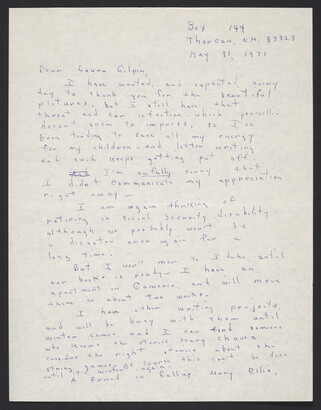 Box 144
Thoreau, N.M. 87323
May 31, 1971
Dear Laura Gilpin,
I have wanted, and expected every
day, to thank you for the beautiful
pictures, but I still have that
throat and ear infection which penicillin
doesn't seem to improve, so I've
been tending to save all my energy
for my children - and letter writing
and such keeps getting put off.
I'm awfully sorry that
I didn't communicate my appreciation
right away -
I am again thinking of
retiring on social security disability,
although we probably won't be
a disaster area again for a
long time.
But I won't move to I until
our books is ready. I have an
apartment in Gamerco, and will move
there in about two weeks.
I have other writing projects,
and will be busy with them until
winter comes and I can find someone
who knows the Mary
the right stories about the
string games. Of course this can't be done
until it winters again.
A friend in Gallup, Mary Ellie,